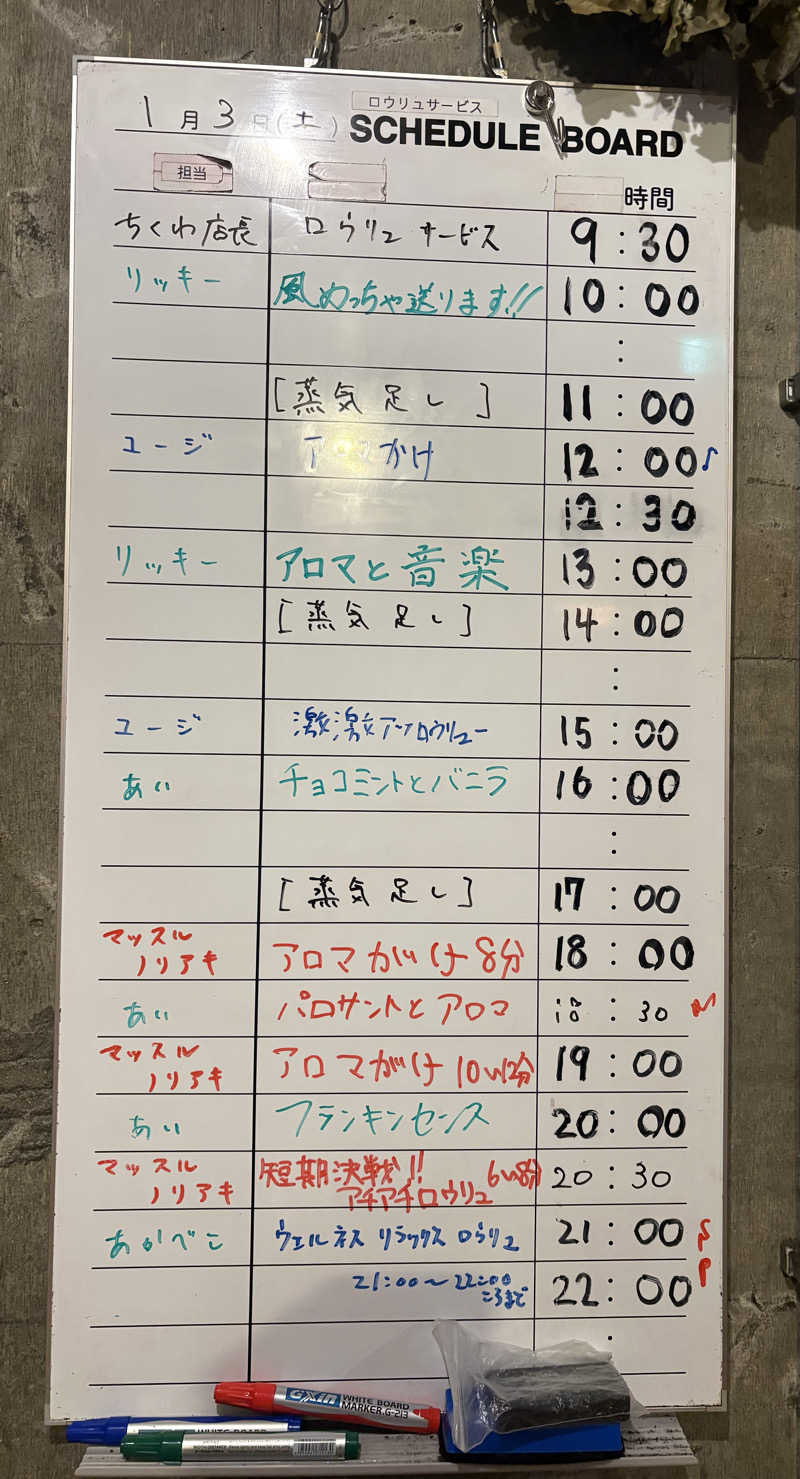 ロウリュサービス
1月3日(土) SCHEDULE BOARD
担当 時間
ちくわ店長 ロウリュサービス 9:30
リッキー 風めっちゃ送ります!! 10:00
:
[蒸気足し] 11:00
ユージ アロマかけ 12:00
12:30
リッキー アロマと音楽 13:00
[蒸気足し] 14:00
:
ユージ 激激アーロウリュー 15:00
あい チョコミントとバニラ 16:00
:
[蒸気足し] 17:00
マッスル
ノリアキ アロマがけ8分 18:00
あい パロサントとアロマ 18:30
マッスル
ノリアキ アロマがけ10い12分 19:00
あい フランキンセンス 20:00
マッスル 短期決戦!! 6い8分
ノリアキ アチアチロウリュ 20:30
あかべこ ウェルネス リラックス ロウリュ 21:00
21:00〜22:00
ころまで 22:00
:
GXin WHITE BOARD
MARKER.G-213
WHITE BOARD